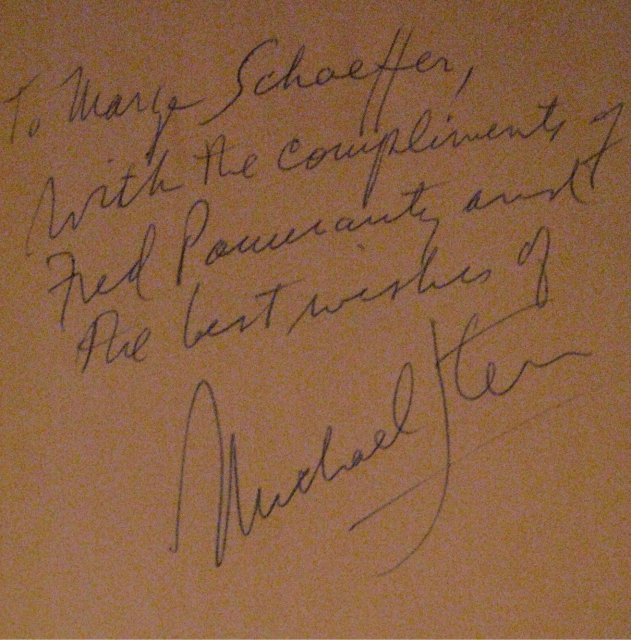 To Marge Schaeffer,
With the compliments of
Fred Pomerantz and
the best wishes of
Michael Stern